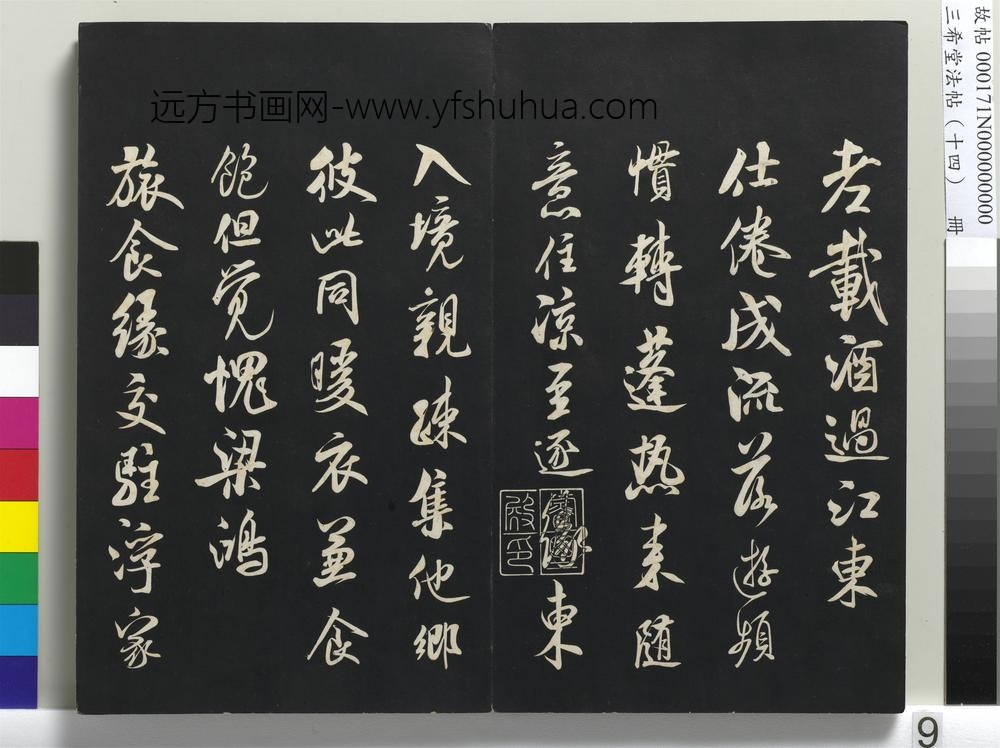 远方书画网-www.yfshuhua.com
老載酒過江東
仕倦成流落遊頻
慣轉蓬热来隨
意住涼至逐
東
入境親疎集他鄉
彼此同暖衣兼食
飽但覺愧梁鴻
旅食緣交駐浮家
故帖 000171N000000000
三希堂法帖（十四） 册
9